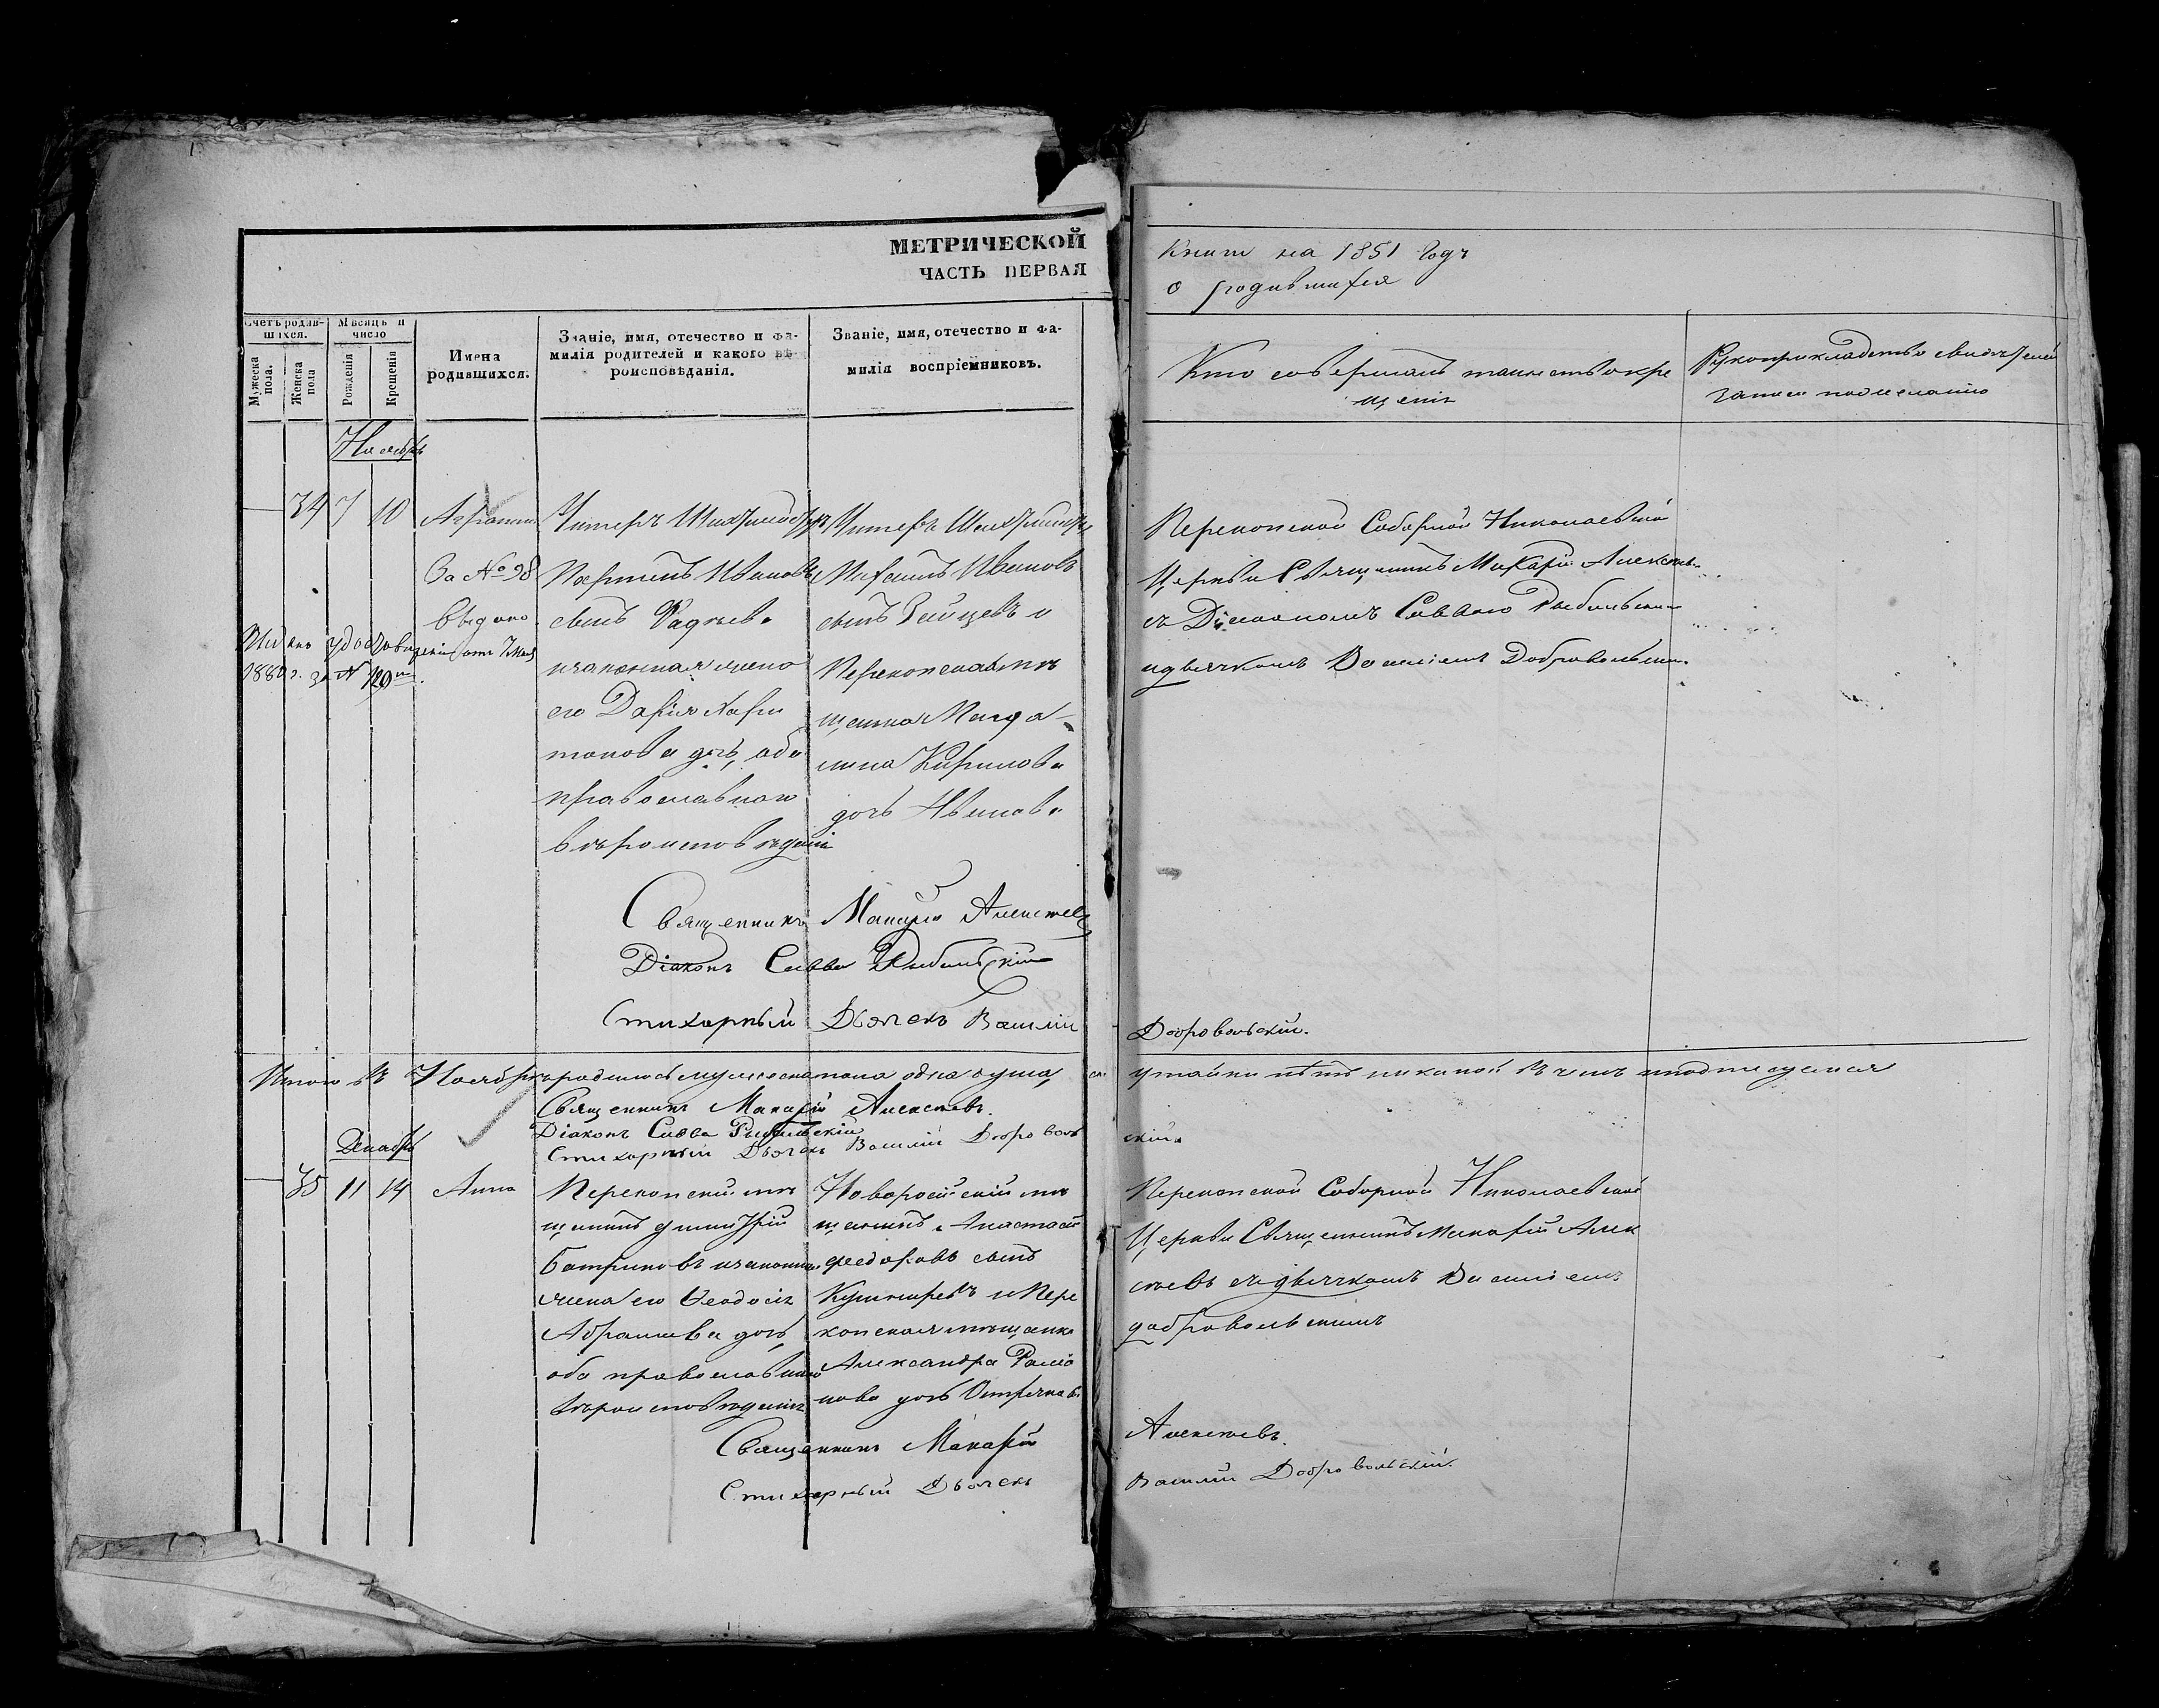 МЕТРИЧЕСКОЙ
ЧАСТЬ ПЕРВАЯ
Книги на 1851 Годъ
о родившихся
Счетъ родив-
шихся.
Мѣсяцъ и
число
Мужеска
пола.
Женска
пола
Рожденія
Крещенія
Имена
родившихся.
Званіе, имя, отечество и фа-
милія родителей и какого вѣ-
роисповѣданія.
Званіе, имя, отечество и фа-
милія воспріемниковъ.
Кто совершалъ таинство кре
щенія
Рукоприкладство свидѣтелей
записи по желанію
Ноябрь
34 7 10
За № 98
Выдано
1880 г. за №
Иванов
сынъ
и законная жена
его Дарія Хари
тонова дочь, оба
православнаго
вѣроисповѣданія
Михаилъ Ивановъ
сынъ Зайцевъ и
Перекопская мѣ
щанка Магда
лина Кирилова
дочь Иванова
Перекопской Соборной Николаевской
Церкви Священникъ Макарій Алексѣевъ
съ Діакономъ Саввою Рыбальским
и дьячкомъ Василіемъ Добровольским.
Священникъ Макарій Алексѣевъ
Діаконъ Савва Рыбальскій
Стихарный Дьячекъ Василій
Добровольскій.
Итого въ Ноябрѣ родилось женска пола одна душа,
утайки нѣтъ никакой въ чемъ и подписуемся
Священникъ Макарій Алексѣевъ.
Діаконъ Савва Рыбальскій
Стихарный Дьячекъ Василій Доброволь
скій.
Декабрь
35 11 14 Анна
Перекопскій мѣ
щанинъ Димитрій
и законная
жена его Феодосія
Абрамова дочь,
оба православнаго
вѣроисповѣданія
Новоросійскій мѣ
щанинъ Анастасій
Федоровъ сынъ
и Пере
копская мѣщанка
Александра
дочь
Перекопской Соборной Николаевской
Церкви Священникъ Макарій Алек
сѣевъ съ дьячкомъ Василіемъ
добровольскимъ
Священникъ Макарій
Алексѣевъ.
Стихарный Дьячекъ
Василій Добровольскій.